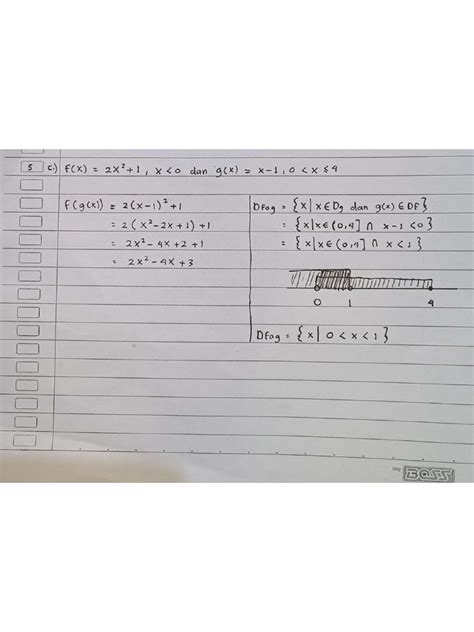 5 c.) F(x) = 2x²+1, x<0 dan g(x) = x-1, 0 < x ≤ 4
F(g(x)) = 2(x-1)²+1
= 2(x²-2x+1)+1
= 2x²-4x+2+1
= 2x²-4x+3
DFog = {x|x∈Dg dan g(x)∈DF}
= {x|x∈(0,4] ∩ x-1<0}
= {x|x∈(0,4] ∩ x<1}
0 1 4
DFog = {x| 0<x<1}
BOSS